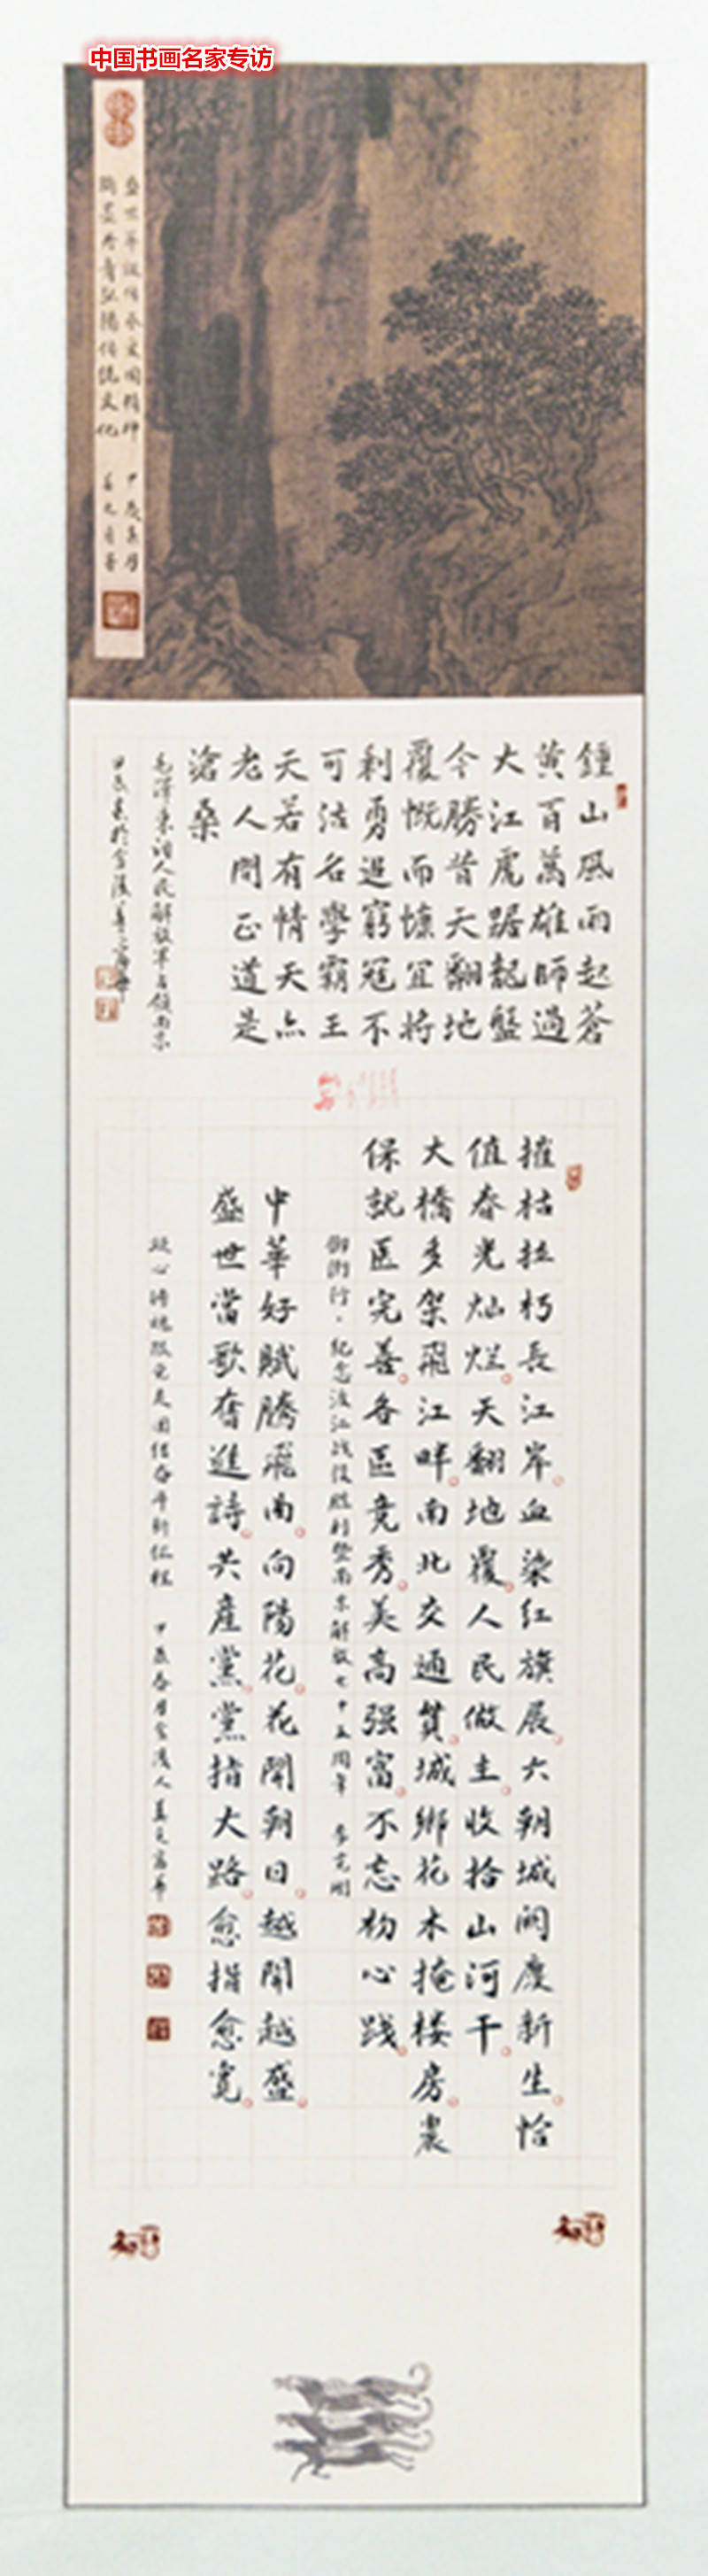 中国书画名家专访
翰墨丹青弘揚傳統文化
鍾山風雨起蒼
黄百萬雄師過
大江虎踞龍盤
今勝昔天翻地
覆慨而慷宜將
剩勇追窮寇不
可沽名學霸王
天若有情天亦
老人間正道是
滄桑
毛澤東詞人民解放軍占領南京
甲辰春於金陵
摧枯拉朽長江岸血染紅旗展六朝城闕慶新生恰
值春光灿烂天翻地覆人民做主收拾山河干
大橋多架飛江畔南北交通貫城鄉花木掩楼房
保就區完善各區竞秀美高强富不忘初心践
御街行·纪念渡江战役胜利暨南京解放七十五周年
中華好賦腾飛曲向陽花花開朔日越開越盛
盛世當歌奮進詩共産黨黨指大路愈指愈寬
凝心铸魂跟党走团结奋斗新征程 甲辰春月金陵人